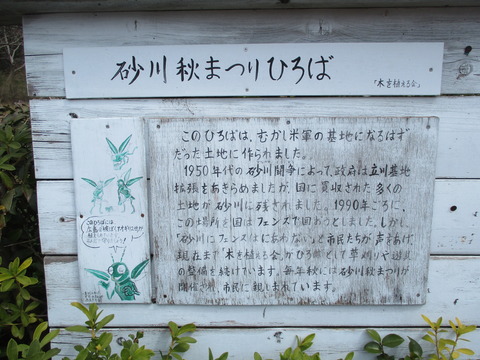 砂川秋まつりひろば
「木を植える会」
このひろばは、むかし米軍の基地になるはず
だった土地に作られました。
1950年代の砂川闘争によって、政府は立川基地
拡張をあきらめましたが、国に買収された多くの
土地が砂川に残されました。1990年ごろに、
この場所を国はフェンスで囲おうとしました。しかし、
「砂川にフェンスはにあわない」と市民たちが声をあげ、
現在まで「木を植える会」がひろばとして草刈りや遊具
の整備を続けています。毎年秋には砂川秋まつりが
開催され、市民に親しまれています。
このひろばには、